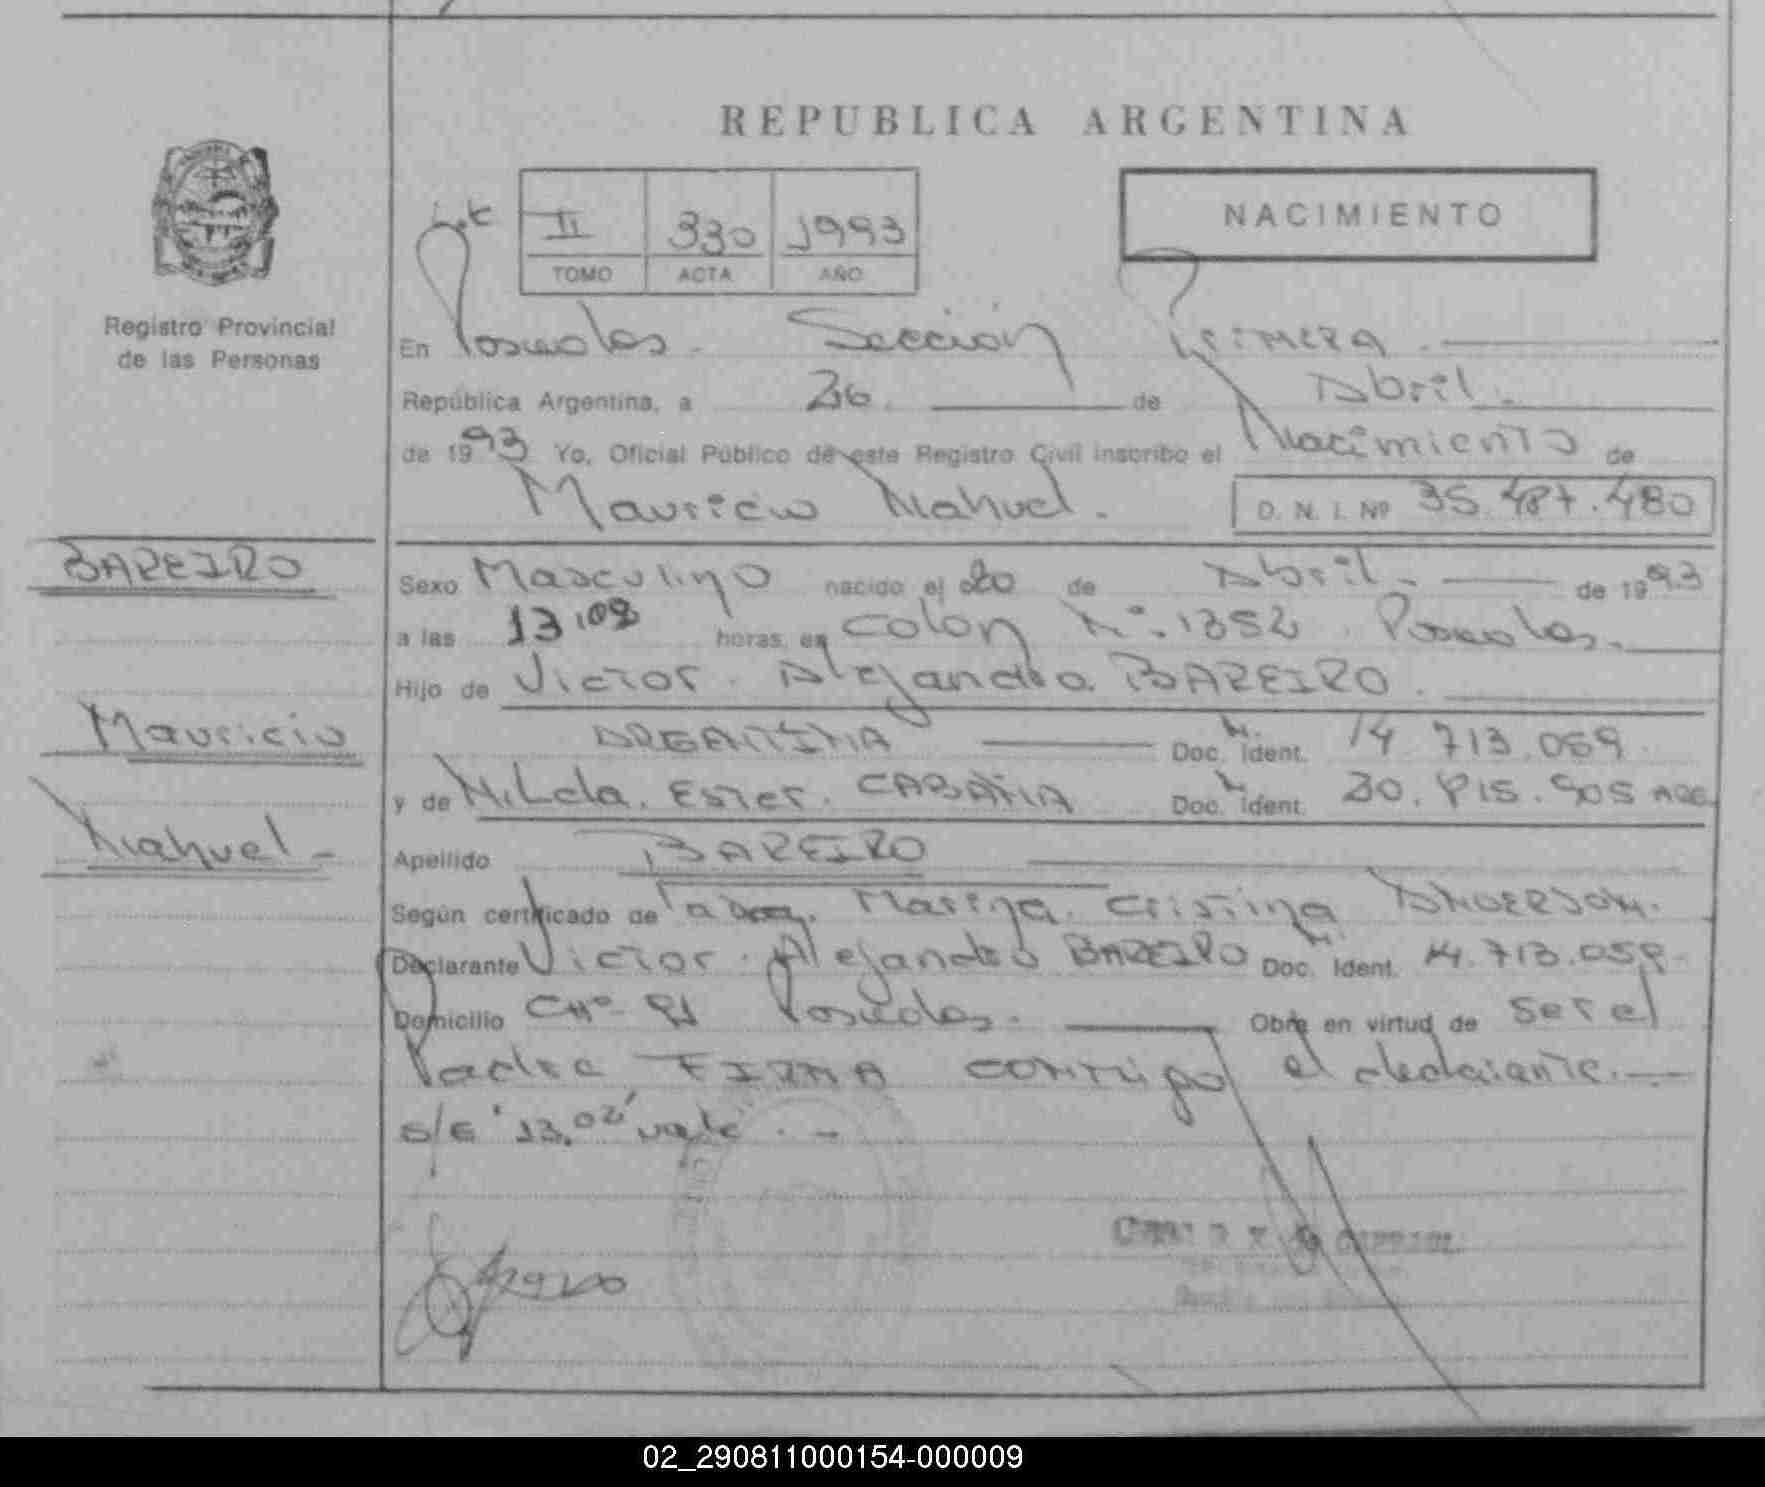 REPUBLICA ARGENTINA
NACIMIENTO
II 330 1993
TOMO ACTA AÑO
Registro Provincial
de las Personas
En Posadas. Sección Primera.
República Argentina, a 26 de Abril.
de 1993 Yo, Oficial Público de este Registro Civil inscribo el Nacimiento de
Mauricio Nahuel. D. N. I. Nº 35.487.480
BAREIRO
Mauricio
Nahuel
Sexo Masculino nacido el 20 de Abril. de 1993
a las 13,02 horas, en Colon Nº. 1352. Posadas.
Hijo de Victor. Alejandro. BAREIRO.
ARGENTINA Doc. Ident. 14 713.059
y de Nilda. Ester. CABAÑA Doc. Ident. 30. 915. 905 ARG.
Apellido BAREIRO
Según certificado de Marina. Cristina ANDERSON.
Declarante Victor. Alejandro BAREIRO Doc. Ident. 14.713.059
Domicilio CHº 91 Posadas. Obra en virtud de ser el
Padre FIRMA conmigo el declarante.
S/E "13,02" vale.
02_290811000154-000009